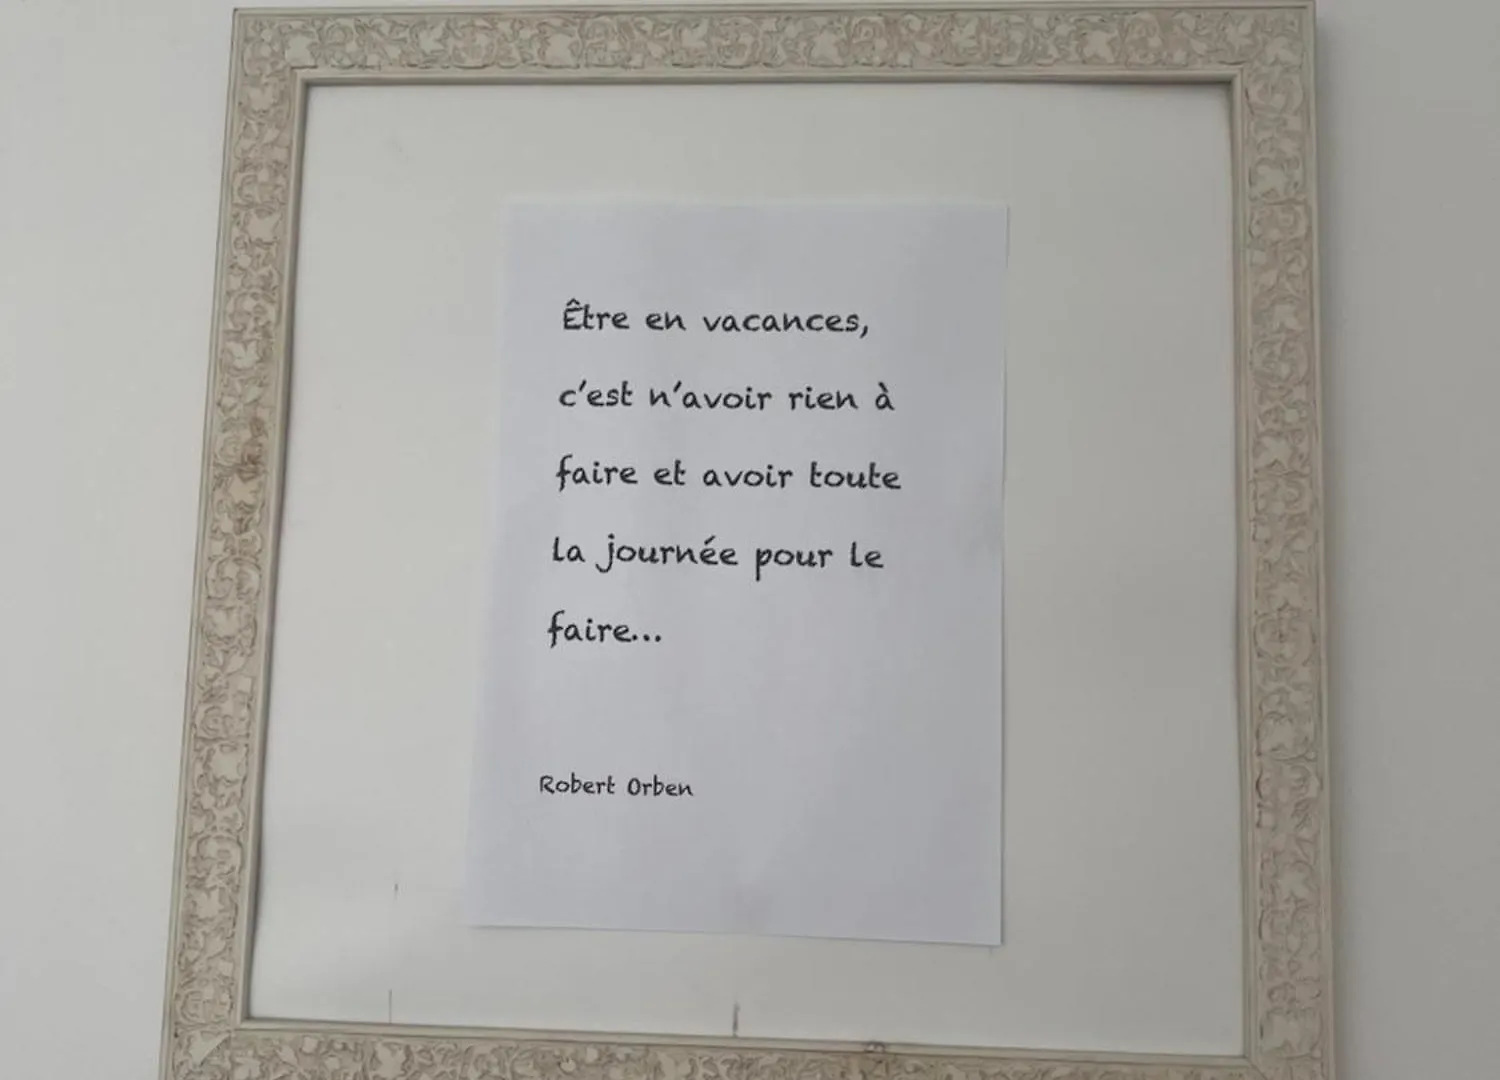 Être en vacances,
c'est n'avoir rien à
faire et avoir toute
la journée pour le
faire...
Robert Orben